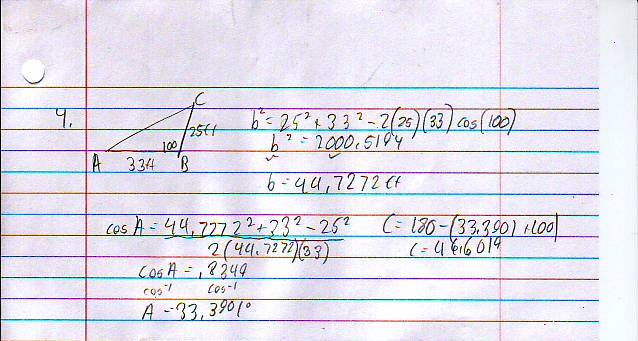 4.
C
25ft
100
A 33ft B
b² = 25² + 33² - 2(25)(33) cos(100)
b² = 2000.5194
b = 44.7272 ft
cos A = 44.7272² + 33² - 25²
2(44.7272)(33)
C = 180 - (33.3901 + 100)
C = 46.6019
cos A = .8349
cos⁻¹ cos⁻¹
A = 33.3901°